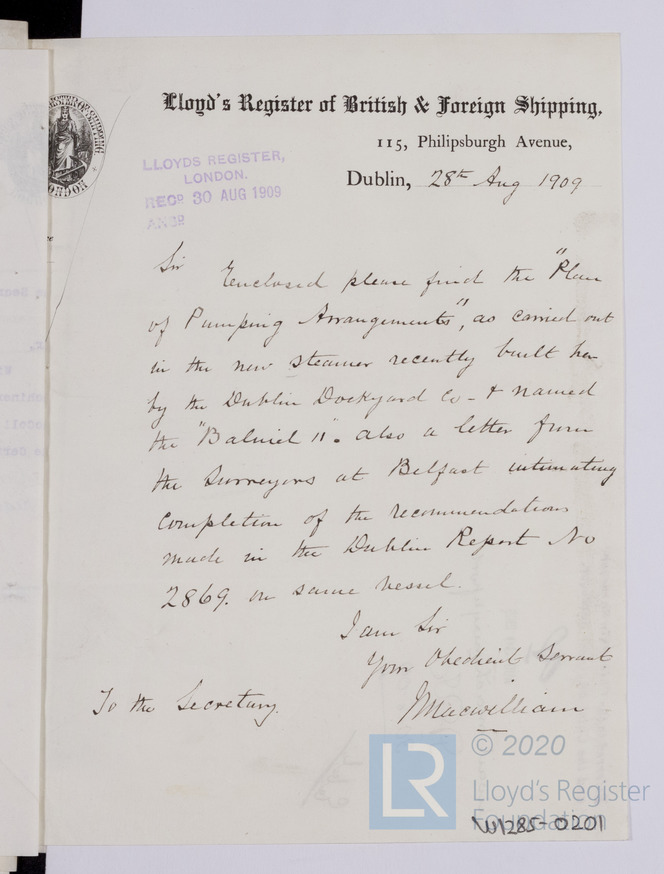 Lloyd's Register of British & Foreign Shipping,
115, Philipsburgh Avenue,
Dublin, 28th Aug 1909
LLOYDS REGISTER,
LONDON.
RECD 30 AUG 1909
ANSD
Sir Enclosed please find the "Plan
of Pumping Arrangements", as carried out
in the new steamer recently built here
by the Dublin Dockyard Co - & named
the "Balniel". also a letter from
the Surveyors at Belfast intimating
completion of the recommendations
made in the Dublin Report No
2869. on same vessel.
I am Sir
Your Obedient Servant
To the Secretary.
JMacwilliam
© 2020
LR
Lloyd's Register
Foundation
W1285-0201